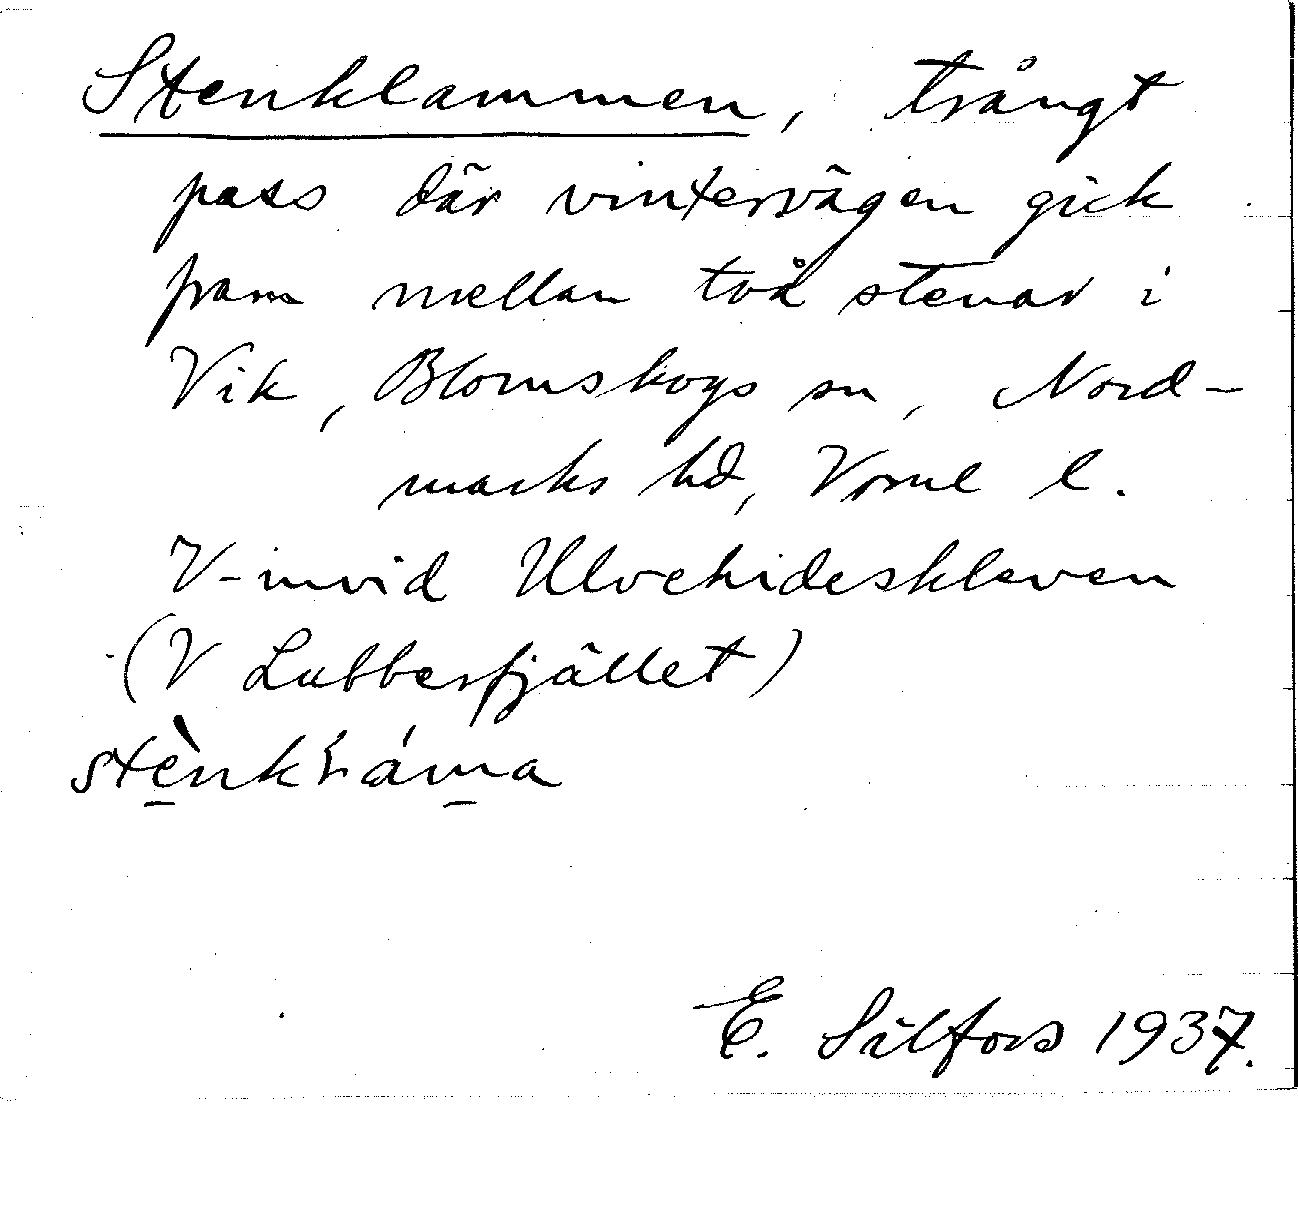 Stenklammen, trångt
pass där vintervägen gick
fram mellan två stenar i
Vik, Blomskogs sn, Nord-
marks hd, Vrml l.
V-invid Ulvehideskleven
(V Lubberfjället)
E. Silfors 1937.